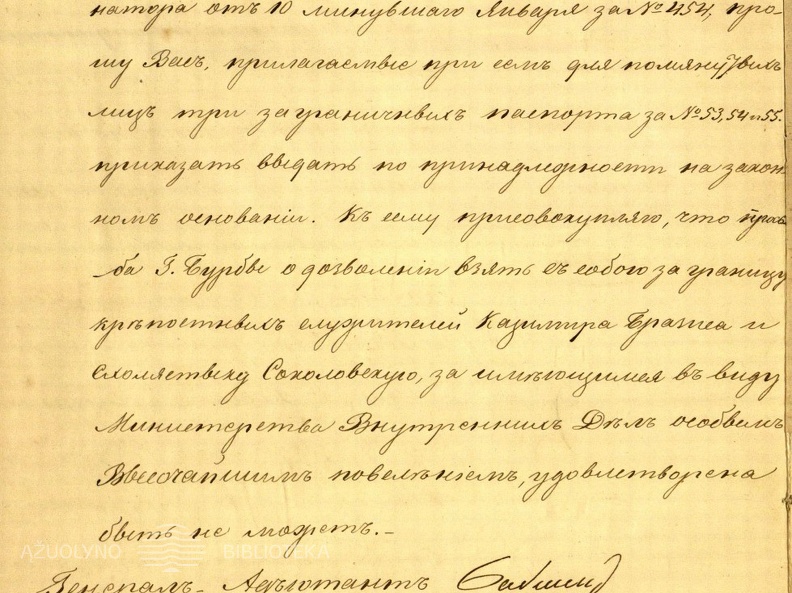 натора отъ 10 минувшаго Января за № 454, про-
шу Васъ, прилагаемые при семъ для помянутыхъ
лицъ три заграничныхъ паспорта за № 53, 54 и 55.
приказать выдать по принадлежности на закон-
номъ основаніи. Къ сему присовокупляю, что прозь-
ба Г. Бурбы о дозволеніи взять съ собою за границу
крѣпостныхъ служителей Казимира и
Схолястыку Соколовскую, за имѣющимся въ виду
Министерства Внутреннихъ Дѣлъ особымъ
Высочайшимъ повелѣніемъ, удовлетворена
быть не можетъ.-
AŽUOLYNO BIBLIOTEKA
Генералъ-Адъютантъ